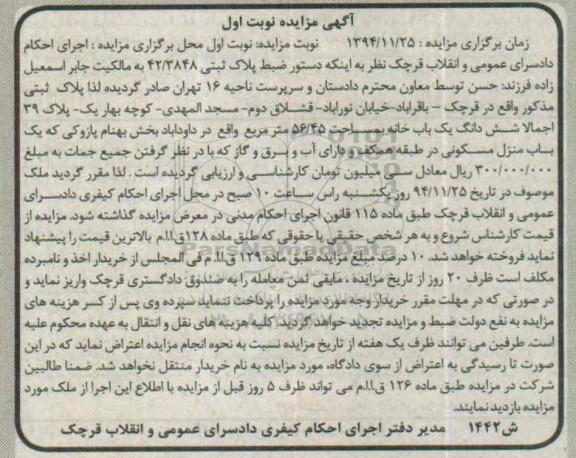 آگهی مزایده نوبت اول
زمان برگزاری مزایده : ۱۳۹۴/۱۱/۲۵ نوبت مزایده: نوبت اول محل برگزاری مزایده : اجرای احکام
دادسرای عمومی و انقلاب قرچک نظر به اینکه دستور ضبط پلاک ثبتی ۴۲/۳۸۴۸ به مالکیت جابر اسمعیل
زاده فرزند: حسن توسط معاون محترم دادستان و سرپرست ناحیه ۱۶ تهران صادر گردیده لذا پلاک ثبتی
مذکور واقع در قرچک – باقراباد-خیابان نوراباد- قشلاق دوم- مسجد المهدی- کوچه بهار یک- پلاک ۳۹
اجمالا شش دانگ یک باب خانه بمساحت ۵۶/۴۵ متر مربع واقع در داوداباد بخش بهنام پازوکی که یک
باب منزل مسکونی در طبقه همکف و دارای آب و برق و گاز که با در نظر گرفتن جمیع جمات به مبلغ
۳۰۰/۰۰۰/۰۰۰ ریال معادل سی میلیون تومان کارشناسی و ارزیابی گردیده است . لذا مقرر گردید ملک
موصوف در تاریخ ۹۴/۱۱/۲۵ روز یکشنبه راس ساعت ۱۰ صبح در محل اجرای احکام کیفری دادسرای
عمومی و انقلاب قرچک طبق ماده ۱۱۵ قانون اجرای احکام مدنی در معرض مزایده گذاشته شود. مزایده از
قیمت کارشناس شروع و به هر شخص حقیقی یا حقوقی که طبق ماده ۱۲۸ق.ا.ا.م بالاترین قیمت را پیشنهاد
نماید فروخته خواهد شد. ۱۰ درصد مبلغ مزایده طبق ماده ۱۲۹ ق.ا.ا.م فی المجلس از خریدار اخذ و نامبرده
مکلف است ظرف ۲۰ روز از تاریخ مزایده ، مابقی ثمن معامله را به صندوق دادگستری قرچک واریز نماید و
در صورتی که در مهلت مقرر خریدار وجه مورد مزایده را پرداخت ننماید سپرده وی پس از کسر هزینه های
مزایده به نفع دولت ضبط و مزایده تجدید خواهد گردید. کلیه هزینه های نقل و انتقال به عهده محکوم علیه
است. طرفین می توانند ظرف یک هفته از تاریخ مزایده نسبت به نحوه انجام مزایده اعتراض نماید که در این
صورت تا رسیدگی به اعتراض از سوی دادگاه، مورد مزایده به نام خریدار منتقل نخواهد شد. ضمنا طالبین
شرکت در مزایده طبق ماده ۱۲۶ ق.ا.ا.م می تواند ظرف ۵ روز قبل از مزایده با اطلاع این اجرا از ملک مورد
مزایده بازدید نمایند.
ش۱۴۴۲ مدیر دفتر اجرای احکام کیفری دادسرای عمومی و انقلاب قرچک